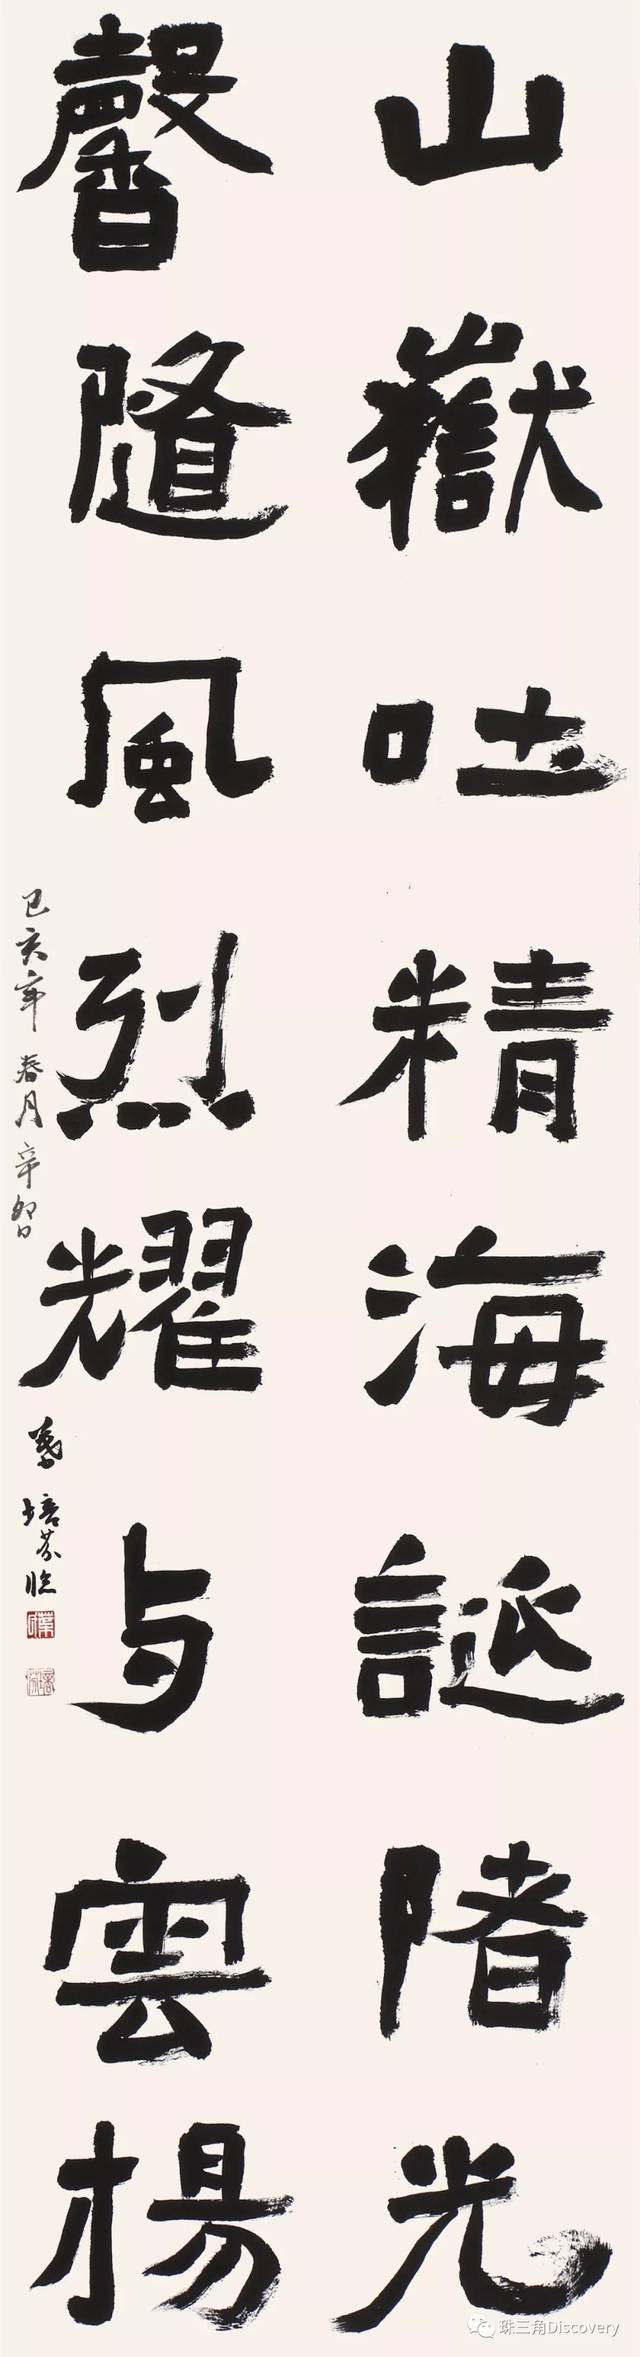 山嶽吐精海誕陼光
馨隨風烈耀与雲楊
己亥年春月
葉培芬臨
珠三角Discovery